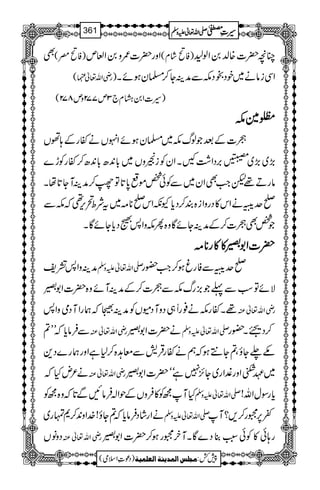 سیرتِ مصطفیٰ صلی اللہ تعالیٰ علیہ وسلم 361
چنانچہ حضرت خالد بن الولید (فاتحِ شام) اور حضرت عمرو بن العاص (فاتح مصر) بھی
اسی زمانے میں خود بخود مکہ سے مدینہ جا کر مسلمان ہوئے۔ (رضی اللہ تعالیٰ عنہما)
(سیرت ابن ہشام ج۳ ص۲۷۷ وص۲۷۸)
مظلومینِ مکہ
ہجرت کے بعد جو لوگ مکہ میں مسلمان ہوئے انہوں نے کفار کے ہاتھوں
بڑی بڑی مصیبتیں برداشت کیں۔ ان کو زنجیروں میں باندھ باندھ کر کفار کوڑے
مارتے تھے لیکن جب بھی ان میں سے کوئی شخص موقع پاتا تو چھپ کر مدینہ آجاتا تھا۔
صلح حدیبیہ نے اس کا دروازہ بند کر دیا کیونکہ اس صلح نامہ میں یہ شرط تحریر تھی کہ مکہ سے
جو شخص بھی ہجرت کر کے مدینہ جائے گا وہ پھر مکہ واپس بھیج دیا جائے گا۔
حضرت ابوبصیر کا کارنامہ
صلح حدیبیہ سے فارغ ہو کر جب حضور صلی اللہ تعالیٰ علیہ وسلم مدینہ واپس تشریف
لائے تو سب سے پہلے جو بزرگ مکہ سے ہجرت کر کے مدینہ آئے وہ حضرت ابوبصیر
رضی اللہ تعالیٰ عنہ تھے۔ کفار مکہ نے فوراً ہی دو آدمیوں کو مدینہ بھیجا کہ ہمارا آدمی واپس
کر دیجئے۔ حضور صلی اللہ تعالیٰ علیہ وسلم نے حضرت ابوبصیر رضی اللہ تعالیٰ عنہ سے فرمایا کہ ”تم
مکے چلے جاؤ، تم جانتے ہو کہ ہم نے کفار قریش سے معاہدہ کر لیا ہے اور ہمارے دین
میں عہد شکنی اور غداری جائز نہیں ہے“ حضرت ابوبصیر رضی اللہ تعالیٰ عنہ نے عرض کیا کہ
یارسول اللہ! صلی اللہ تعالیٰ علیہ وسلم کیا آپ مجھ کو کافروں کے حوالہ فرمائیں گے تاکہ وہ مجھ کو
کفر پر مجبور کریں؟ آپ صلی اللہ تعالیٰ علیہ وسلم نے ارشاد فرمایا کہ تم جاؤ! خداوند کریم تمہاری
رہائی کا کوئی سبب بنا دے گا۔ آخر مجبور ہو کر حضرت ابوبصیر رضی اللہ تعالیٰ عنہ دونوں
پیش کش: مجلس المدینۃ العلمیۃ (دعوتِ اسلامی)